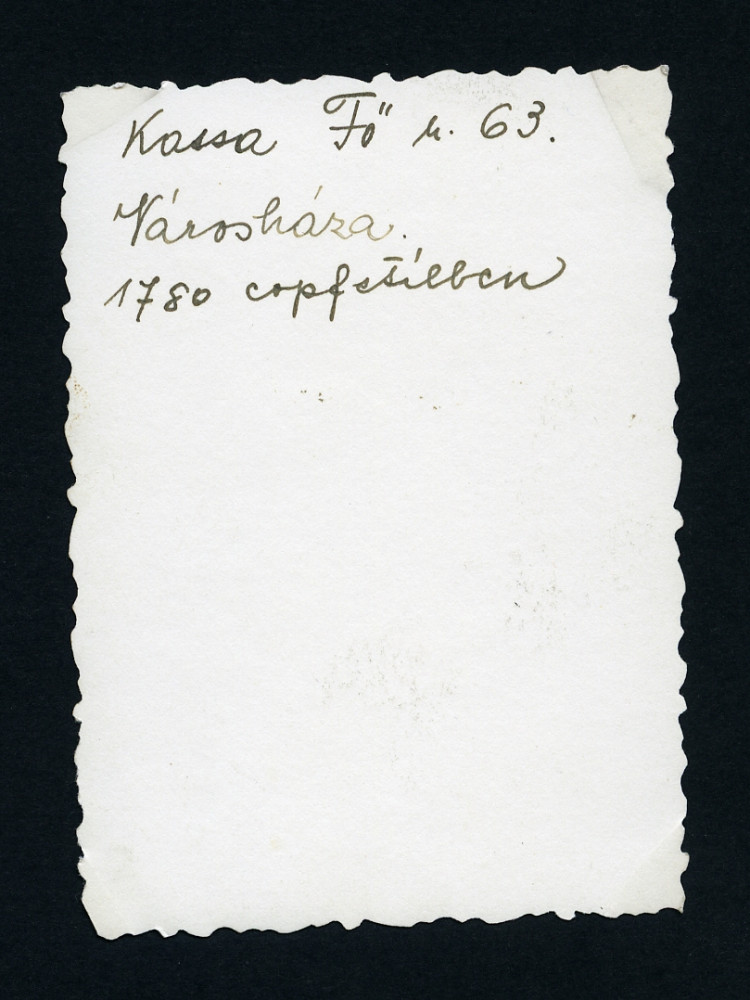 Kassa Fő u. 63.
Városháza.
1780 copfstílben